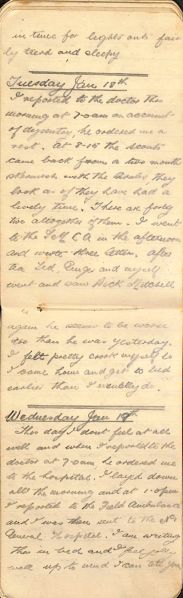 in time for lights out fair
ly tired and sleepy
Tuesday Jan 18th
I reported to the doctor this
morning at 7-0am on account
of dysentry he ordered me a
rest. At 8-15 the scouts
came back from a two months
with the they
look as if they have had a
lively time. There are forty
two altogether of them. I went
to the Y M C A in the afternoon
and wrote three letters. After
tea Ted, and myself
went and saw Dick
again he seems to be worse
too than he was yesterday.
I felt pretty crook myself so
I came home and got to bed
earlier than I usually do.
Wednesday Jan 19th
This day I dont feel at all
well and when I reported to the
doctor at 7-0am he ordered me
to the hospital. I layed down
all the morning and at 1-0pm
I reported to the Field Ambulance
and I was then sent to the
General Hospital. I am writing
this in bed and I feel
well up to wind I can tell you